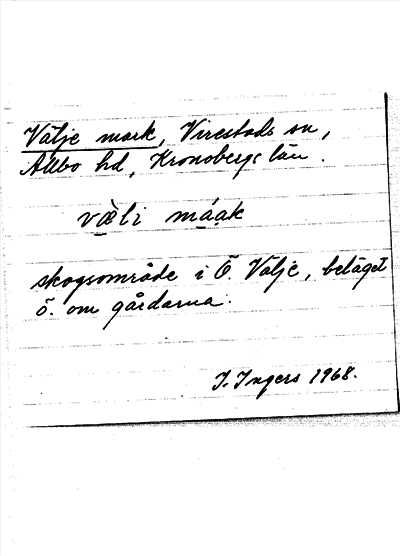 Välje mark, Virestads sn,
Allbo hd, Kronobergs län.
væ̀li máak
skogsområde i Ö. Välje, beläget
ö. om gårdarna.
I. Ingers 1968.